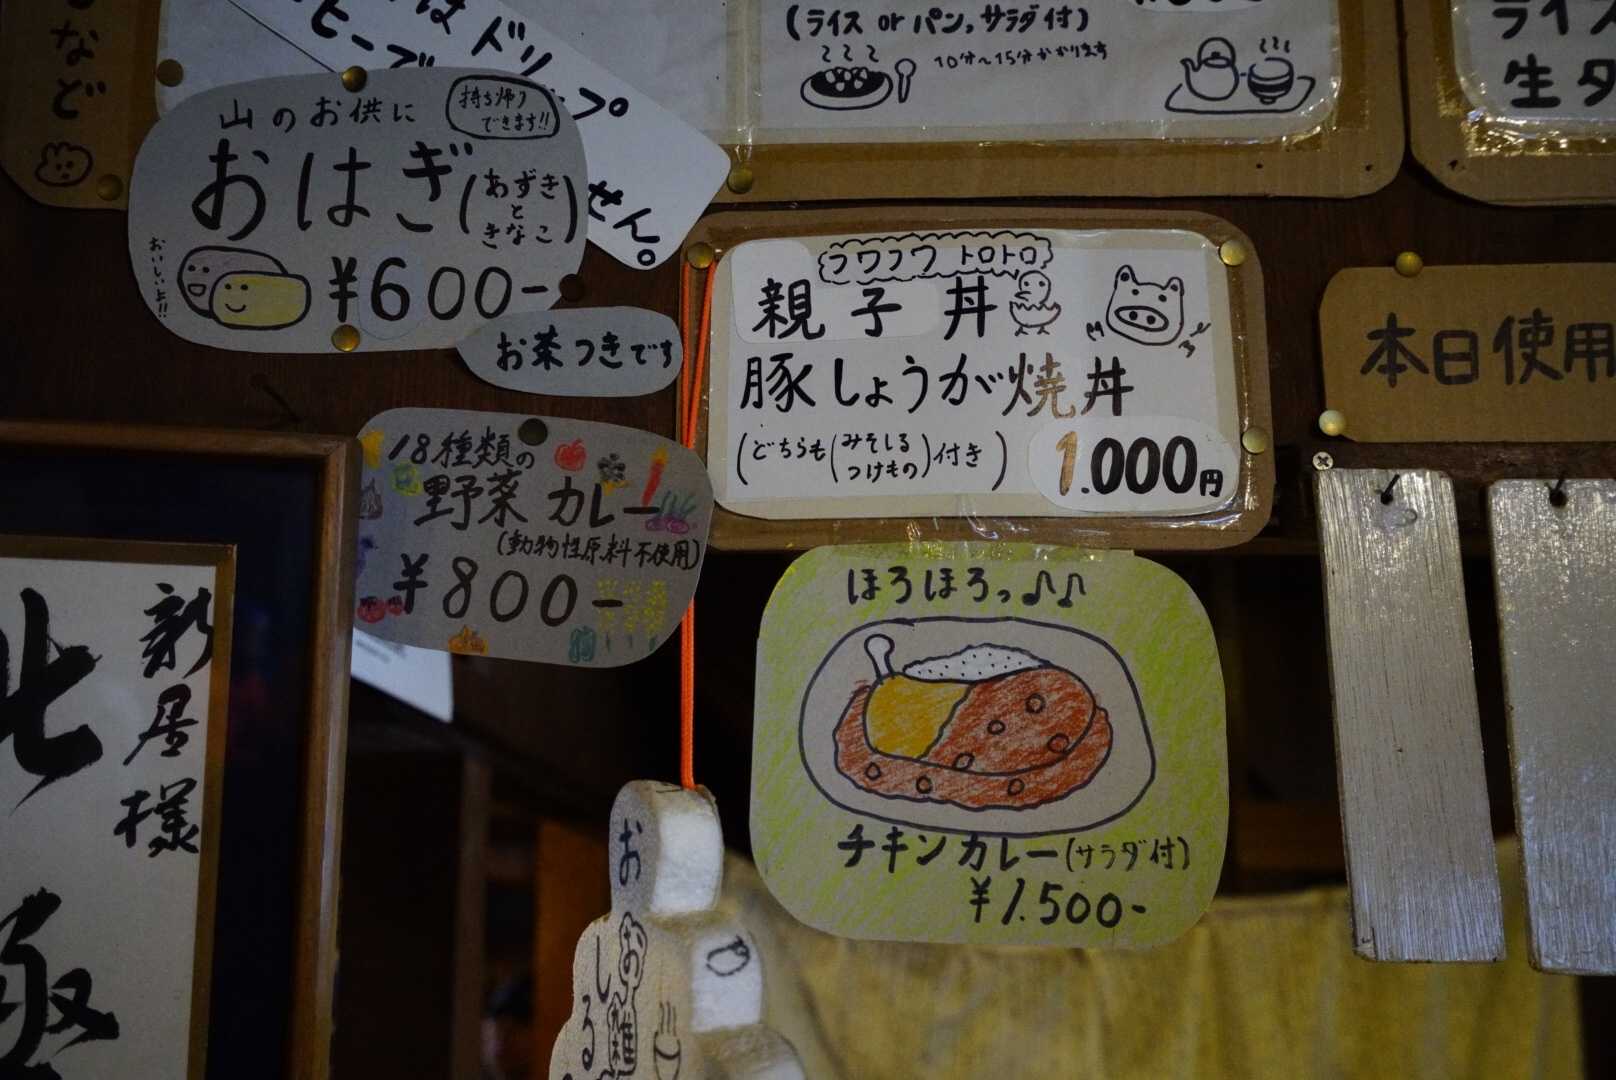 など
はドリップ
ヒーブ
せん。
(ライス or パン,サラダ付)
10分〜15分かかります
ライス
生タ
山のお供に
持ち帰り
できます!!
おはぎ(あずき
と
きなこ)
おいしいよ!!
¥600-
お茶つきです
フワフワ トロトロ
親子丼
豚しょうが焼丼
(どちらも(みそしる
つけもの)付き)
1.000円
本日使用
18種類の
野菜カレー
(動物性原料不使用)
¥800-
ほろほろっ♪♪
チキンカレー(サラダ付)
¥1.500-
新居様
北
極
おしるこ